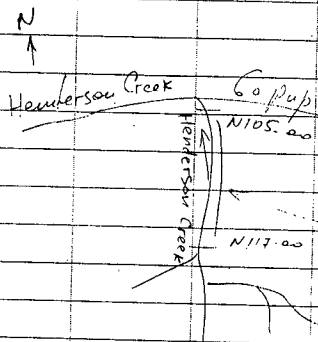 N
Henderson Creek
60 pup
N105.00
Henderson Creek
N117.00